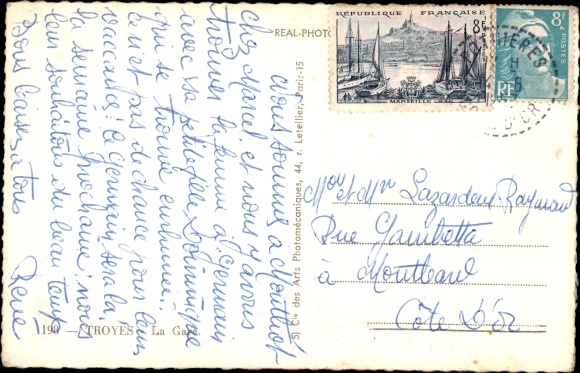 Nous sommes à Monthiot
chez Marcel et nous y avons
trouver la femme à Germain
avec sa petite fille Dominique
qui se trouve enrhumée.
Ce n'est pas de chance pour leurs
vacances. Germain sera là
la semaine prochaine; nous
leur souhaitons du beau temps
Bons baisers à tous
René
190 — TROYES — La Gare.
REAL-PHOTO
5) Cie des Arts Photomécaniques, 44, r. Letellier, Paris-15
RÉPUBLIQUE FRANÇAISE
8F
MARSEILLE
8F
POSTES
RF
D'OR
Mr et Mme Lazardeux Raymond
Rue Gambetta
à Montbard
Côte d'Or